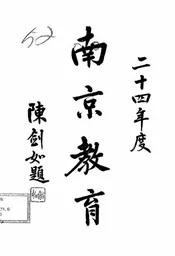 二十四年度
南京教育
陳劍如題